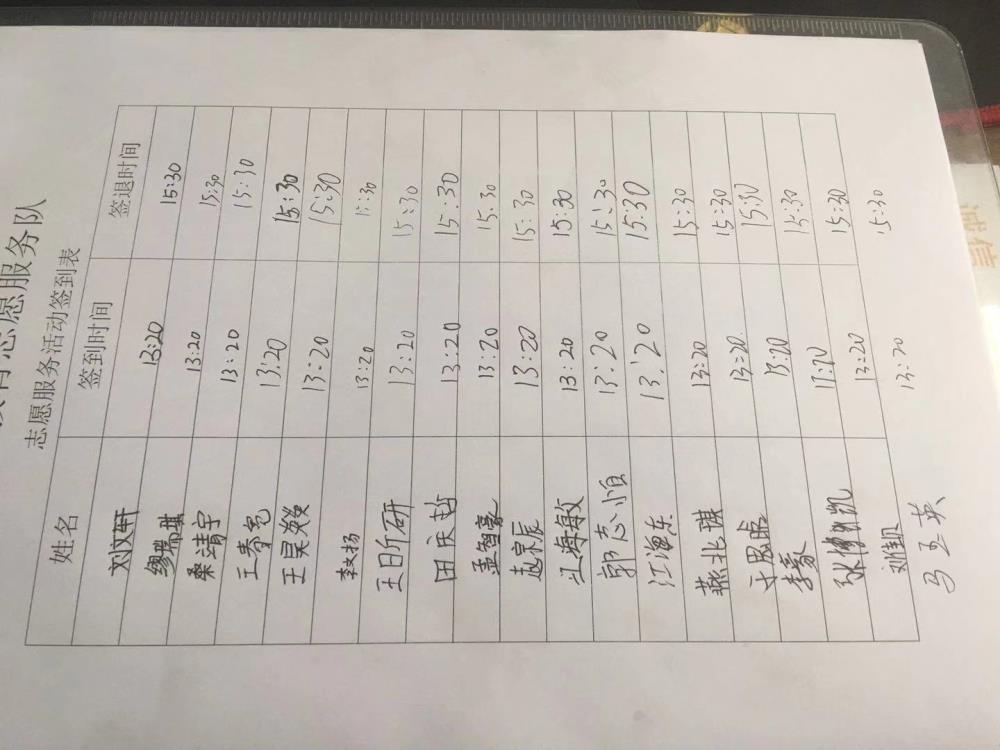 志愿服务队
志愿服务活动签到表
姓名 签到时间 签退时间
刘文轩 13:20 15:30
缪瑞琪 13:20 15:30
桑靖宇 13:20 15:30
王春 13:20 15:30
王昊 13:20 15:30
李文扬 13:20 15:30
王昕研 13:20 15:30
田庆哲 13:20 15:30
孟智豪 13:20 15:30
赵宗辰 13:20 15:30
江海敏 13:20 15:30
郭志怕 13:20 15:30
江海东 13:20 15:30
燕北琪 13:20 15:30
于思 13:20 15:30
李 13:20 15:30
张博凯 13:20 15:30
刘 13:20 15:30
马玉英 13:20 15:30
诚信